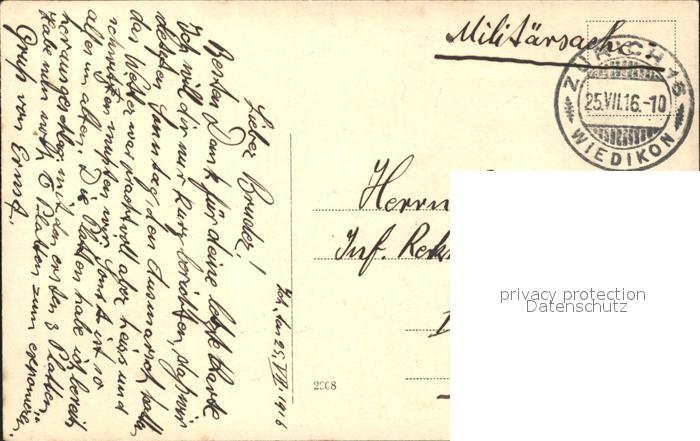 Militärsache
ZÜRICH 15
25.VII.16.-10
WIEDIKON
Herrn
Inf. Rekr
privacy protection
Datenschutz
2908
25. VII 1916
Lieber Bruder!
Besten Dank für deine letzte Karte
Ich will dir nur kurz berichten, dass wir
letzten Sonntag, den Ausmarsch
das Wetter war prachtvoll aber heiss und
schwitzen mussten wir. Sonst ist so
alles im alten. Die Platten habe ich bereits
mit den ersten 3 Platten,
habe nun noch 8 Platten zum exponieren.
Gruss von Ernst.